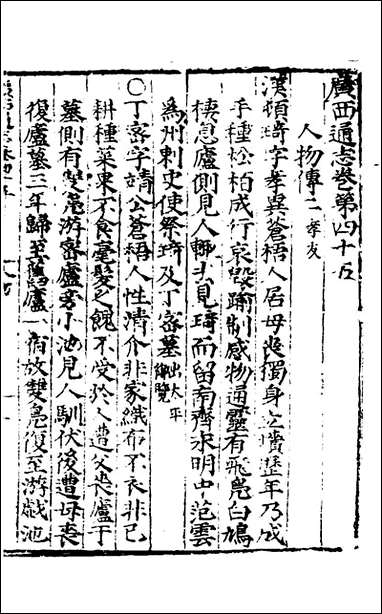 廣西通志卷第四十五
人物傳二 孝友
漢頓琦字孝異蒼梧人居母喪獨身立墳歷年乃成
手種松柏成行哀毀踊制感物通靈有飛鳧白鳩
棲息廬側見人輒去見琦而留南齊永明中范雲
為州刺史使祭琦及丁密墓出太平御覽
〇丁密字靖公蒼梧人性清介非家織布不衣非己
耕種菜果不食毫髮之餽不受於人遭父喪廬于
墓側有雙鳧游密廬旁小池見人馴伏後遭母喪
復廬墓三年歸至舊廬一宿放雙鳧復至游戲池